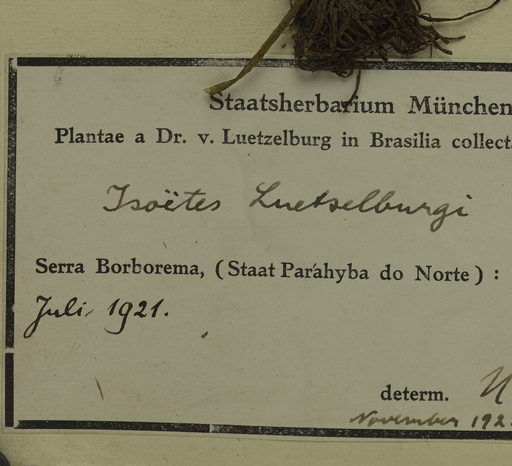 Staatsherbarium München
Plantae a Dr. v. Luetzelburg in Brasilia collect.
Isoëtes Luetzelburgi
Serra Borborema, (Staat Paráhyba do Norte) :
Juli, 1921.
determ.
November 192